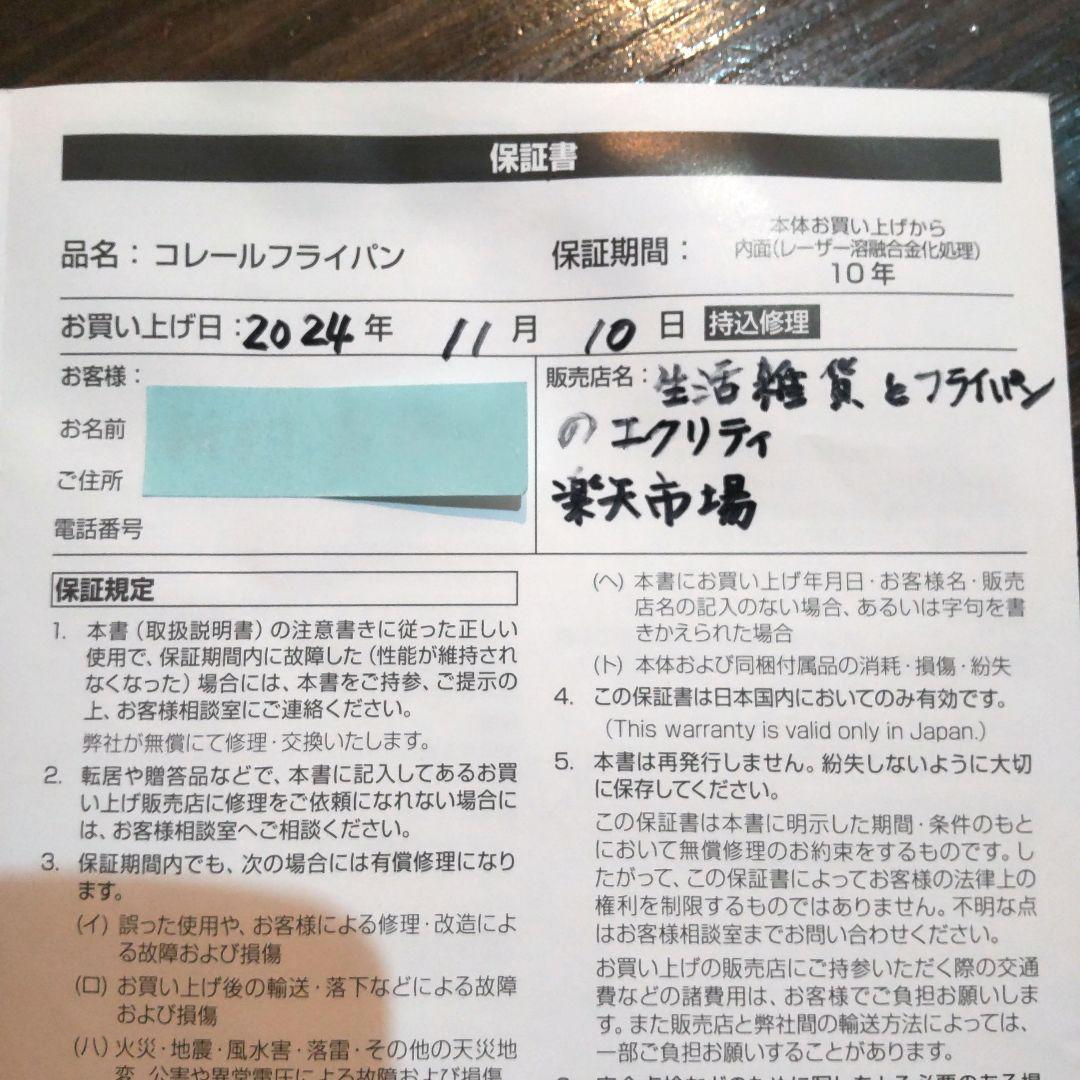 保証書
品名：コレールフライパン
保証期間：
本体お買い上げから
内面(レーザー溶融合金化処理)
10年
お買い上げ日：2024年 11月 10日 持込修理
お客様：
お名前
ご住所
電話番号
販売店名：生活雑貨とフライパン
のエクリティ
楽天市場
保証規定
1. 本書（取扱説明書）の注意書きに従った正しい
使用で、保証期間内に故障した（性能が維持され
なくなった）場合には、本書をご持参、ご提示の
上、お客様相談室にご連絡ください。
弊社が無償にて修理・交換いたします。
2. 転居や贈答品などで、本書に記入してあるお買
い上げ販売店に修理をご依頼になれない場合に
は、お客様相談室へご相談ください。
3. 保証期間内でも、次の場合には有償修理になり
ます。
(イ) 誤った使用や、お客様による修理・改造によ
る故障および損傷
(ロ) お買い上げ後の輸送・落下などによる故障
および損傷
(ハ) 火災・地震・風水害・落雷・その他の天災地
変、公害や異常電圧による故障および損傷
(ヘ) 本書にお買い上げ年月日・お客様名・販売
店名の記入のない場合、あるいは字句を書
きかえられた場合
(ト) 本体および同梱付属品の消耗・損傷・紛失
4. この保証書は日本国内においてのみ有効です。
（This warranty is valid only in Japan.）
5. 本書は再発行しません。紛失しないように大切
に保存してください。
この保証書は本書に明示した期間・条件のもと
において無償修理のお約束をするものです。し
たがって、この保証書によってお客様の法律上の
権利を制限するものではありません。不明な点
はお客様相談室までお問い合わせください。
お買い上げの販売店にご持参いただく際の交通
費などの諸費用は、お客様でご負担お願いしま
す。また販売店と弊社間の輸送方法によっては、
一部ご負担お願いすることがあります。